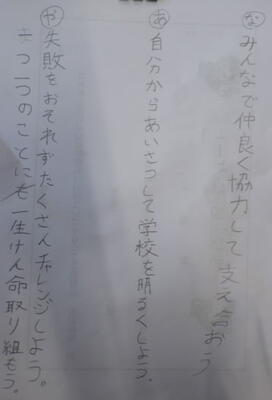 な みんなで仲良く協力して支え合おう
あ 自分からあいさつして学校を明るくしよう.
や 失敗をおそれずたくさんチャレンジしよう。
一つのことに一生けん命取り組もう。